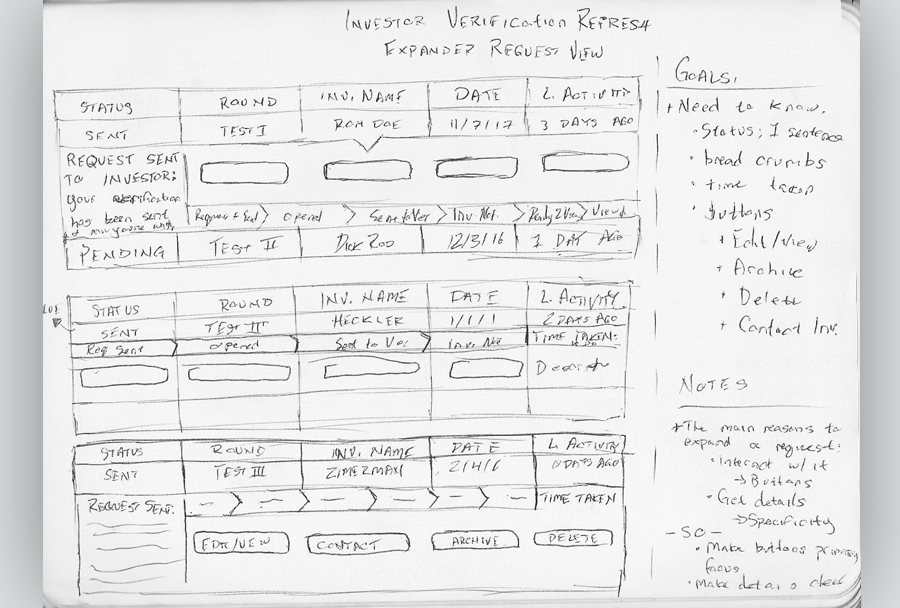 INVESTOR VERIFICATION
EXPANDED REQUEST VIEW
STATUS ROUND INV. NAME DATE L. ACTIVITY
SENT TEST I RON DOE 11/7/17 3 DAYS AGO
REQUEST SENT
TO INVESTOR:
your verification
has been sent
Request Sent opened Sent to Ver Inv. Not. Ready 2 View Viewed
PENDING TEST II DICK ROO 12/3/16 1 DAY AGO
STATUS ROUND INV. NAME DATE L. ACTIVITY
SENT TEST II HECKLER 1/1/1 2 DAYS AGO
Req Sent opened Sent to Ver Inv. Not TIME TAKEN:
STATUS ROUND INV. NAME DATE L. ACTIVITY
SENT TEST III ZIMERMAN 2/4/6 0 DAYS AGO
REQUEST SENT: TIME TAKEN
EDIT/VIEW CONTACT ARCHIVE DELETE
GOALS,
+ Need to know.
• Status; 1 sentence
• bread crumbs
• time taken
• buttons
+ Edit/View
+ Archive
+ Delete
+ Contact Inv.
NOTES
+ The main reasons to
expand a request:
• Interact w/ it
→ Buttons
• Get details
→ Specificity
- SO -
• Make buttons primary
focus
• Make details clear